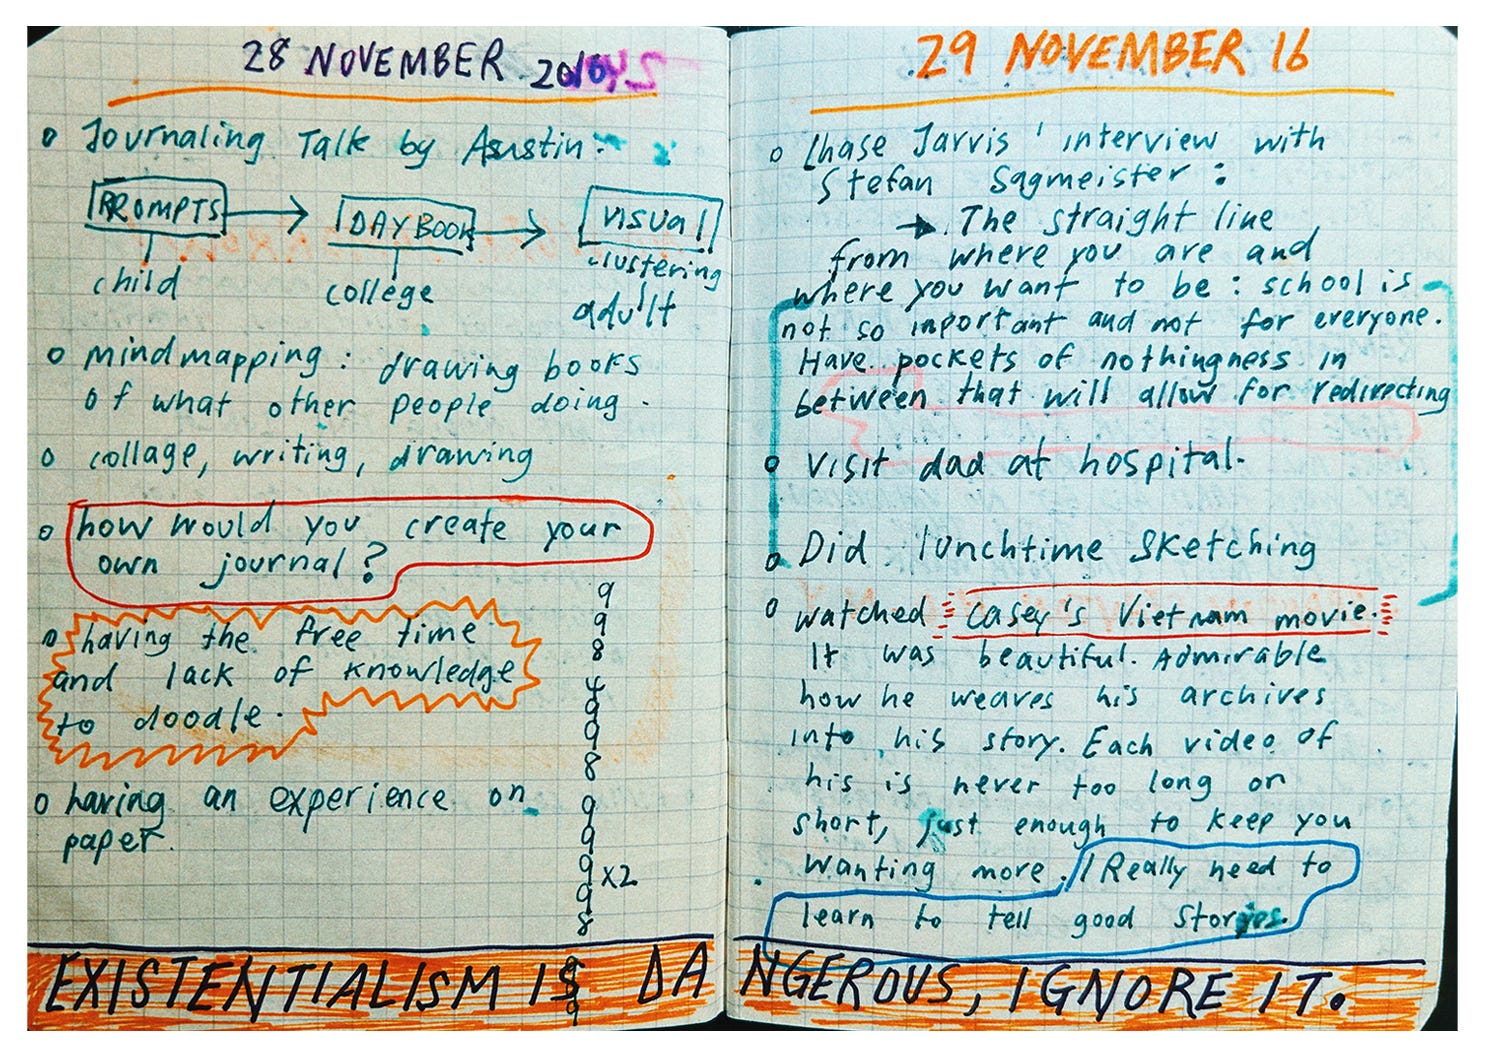 28 NOVEMBER 2016
o Journaling Talk by Asustin:
PROMPTS → DAYBOOK → VISUAL
clustering
child college adult
o mindmapping: drawing books
of what other people doing.
o collage, writing, drawing
o how would you create your
own journal?
o having the free time
and lack of knowledge
to doodle.
o having an experience on
paper.
9
9
8
9
9
8
9
9
9 x2
9
8
9
29 NOVEMBER 16
o Chase Jarvis' interview with
Stefan Sagmeister:
→ The straight line
from where you are and
where you want to be: school is
not so inportant and not for everyone.
Have pockets of nothingness in
between that will allow for redirecting
o visit dad at hospital.
o Did lunchtime sketching
o watched casey's Vietnam movie.
It was beautiful. Admirable
how he weaves his archives
into his story. Each video of
his is never too long or
short, just enough to keep you
wanting more. I Really need to
learn to tell good stories.
EXISTENTIALISM IS DANGEROUS, IGNORE IT.